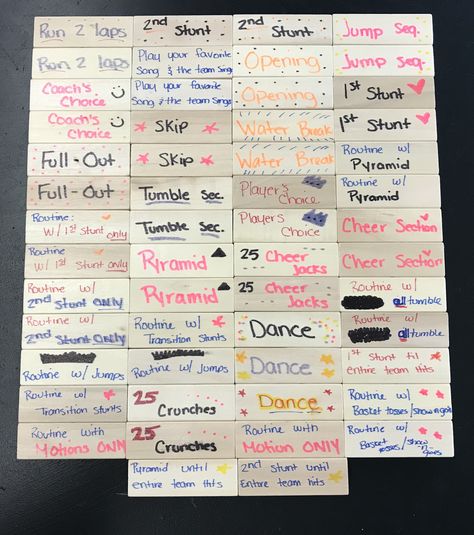 Run 2 laps
2nd Stunt
2nd Stunt
Jump Seq.
Run 2 laps
Play your favorite
Song & the team sings
Opening
Jump Seq.
Coach's
Choice
Play your favorite
Song & the team sings
Opening
1st Stunt
Coach's
Choice
Skip
Water Break
1st Stunt
Full-Out
Skip
Water Break
Routine w/
Pyramid
Full-Out
Tumble Sec.
Player's
Choice
Routine w/
Pyramid
Routine:
w/1st stunt only
Tumble Sec.
Players
Choice
Cheer Section
Routine
w/ 1st Stunt only
Pyramid
25 Cheer
Jacks
Cheer Section
Routine w/
2nd Stunt ONLY
Pyramid
25 Cheer
Jacks
Routine w/
all tumble
Routine w/
2nd Stunt ONLY
Routine w/
Transition Stunts
Dance
Routine w/
all tumble
Routine w/ Jumps
Routine w/ Jumps
Dance
1st Stunt til
entire team hits
Routine w/
Transition stunts
25
Crunches
Dance
Routine w/
Basket tosses/
Routine with
Motions ONLY
25
Crunches
Routine with
Motion ONLY
Routine w/
Basket
Pyramid until
entire team hits
2nd Stunt until
Entire team hits